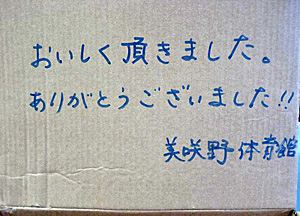 おいしく頂きました。
ありがとうございました!!
美咲野体育館